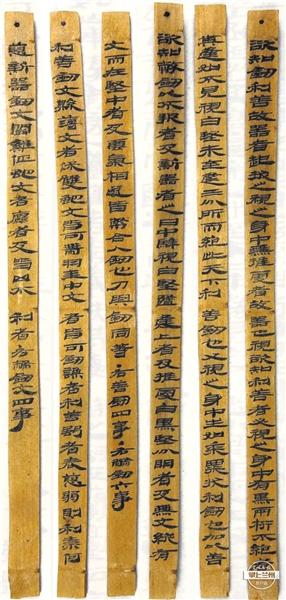 欲知劍利善故器者起拔之視之身中無推處者故器也視欲知利善者必視之身中有黑兩桁不絕者
其逢如不見視白堅未至逢三分所而絕此天下利善劍也又視之身中生如黍粟狀利劍也加以善
欲知幣劍以不報者及新器者之日中騂視白堅隨逢上者及推處白黑堅分明者及無文縱有
文而在堅中者及雲氣相遂皆幣合人劍也刀與劍同等·右善劍四事·右幣劍六事
利善劍文縣薄文者保雙蛇文皆可帶羽圭中文者皆可劍謙者利善強者表惡弱則利奈何
惡新器劍文鬬雞佂蛇文者麤者及皆凶不利者·右幣劍文四事
掌上兰州